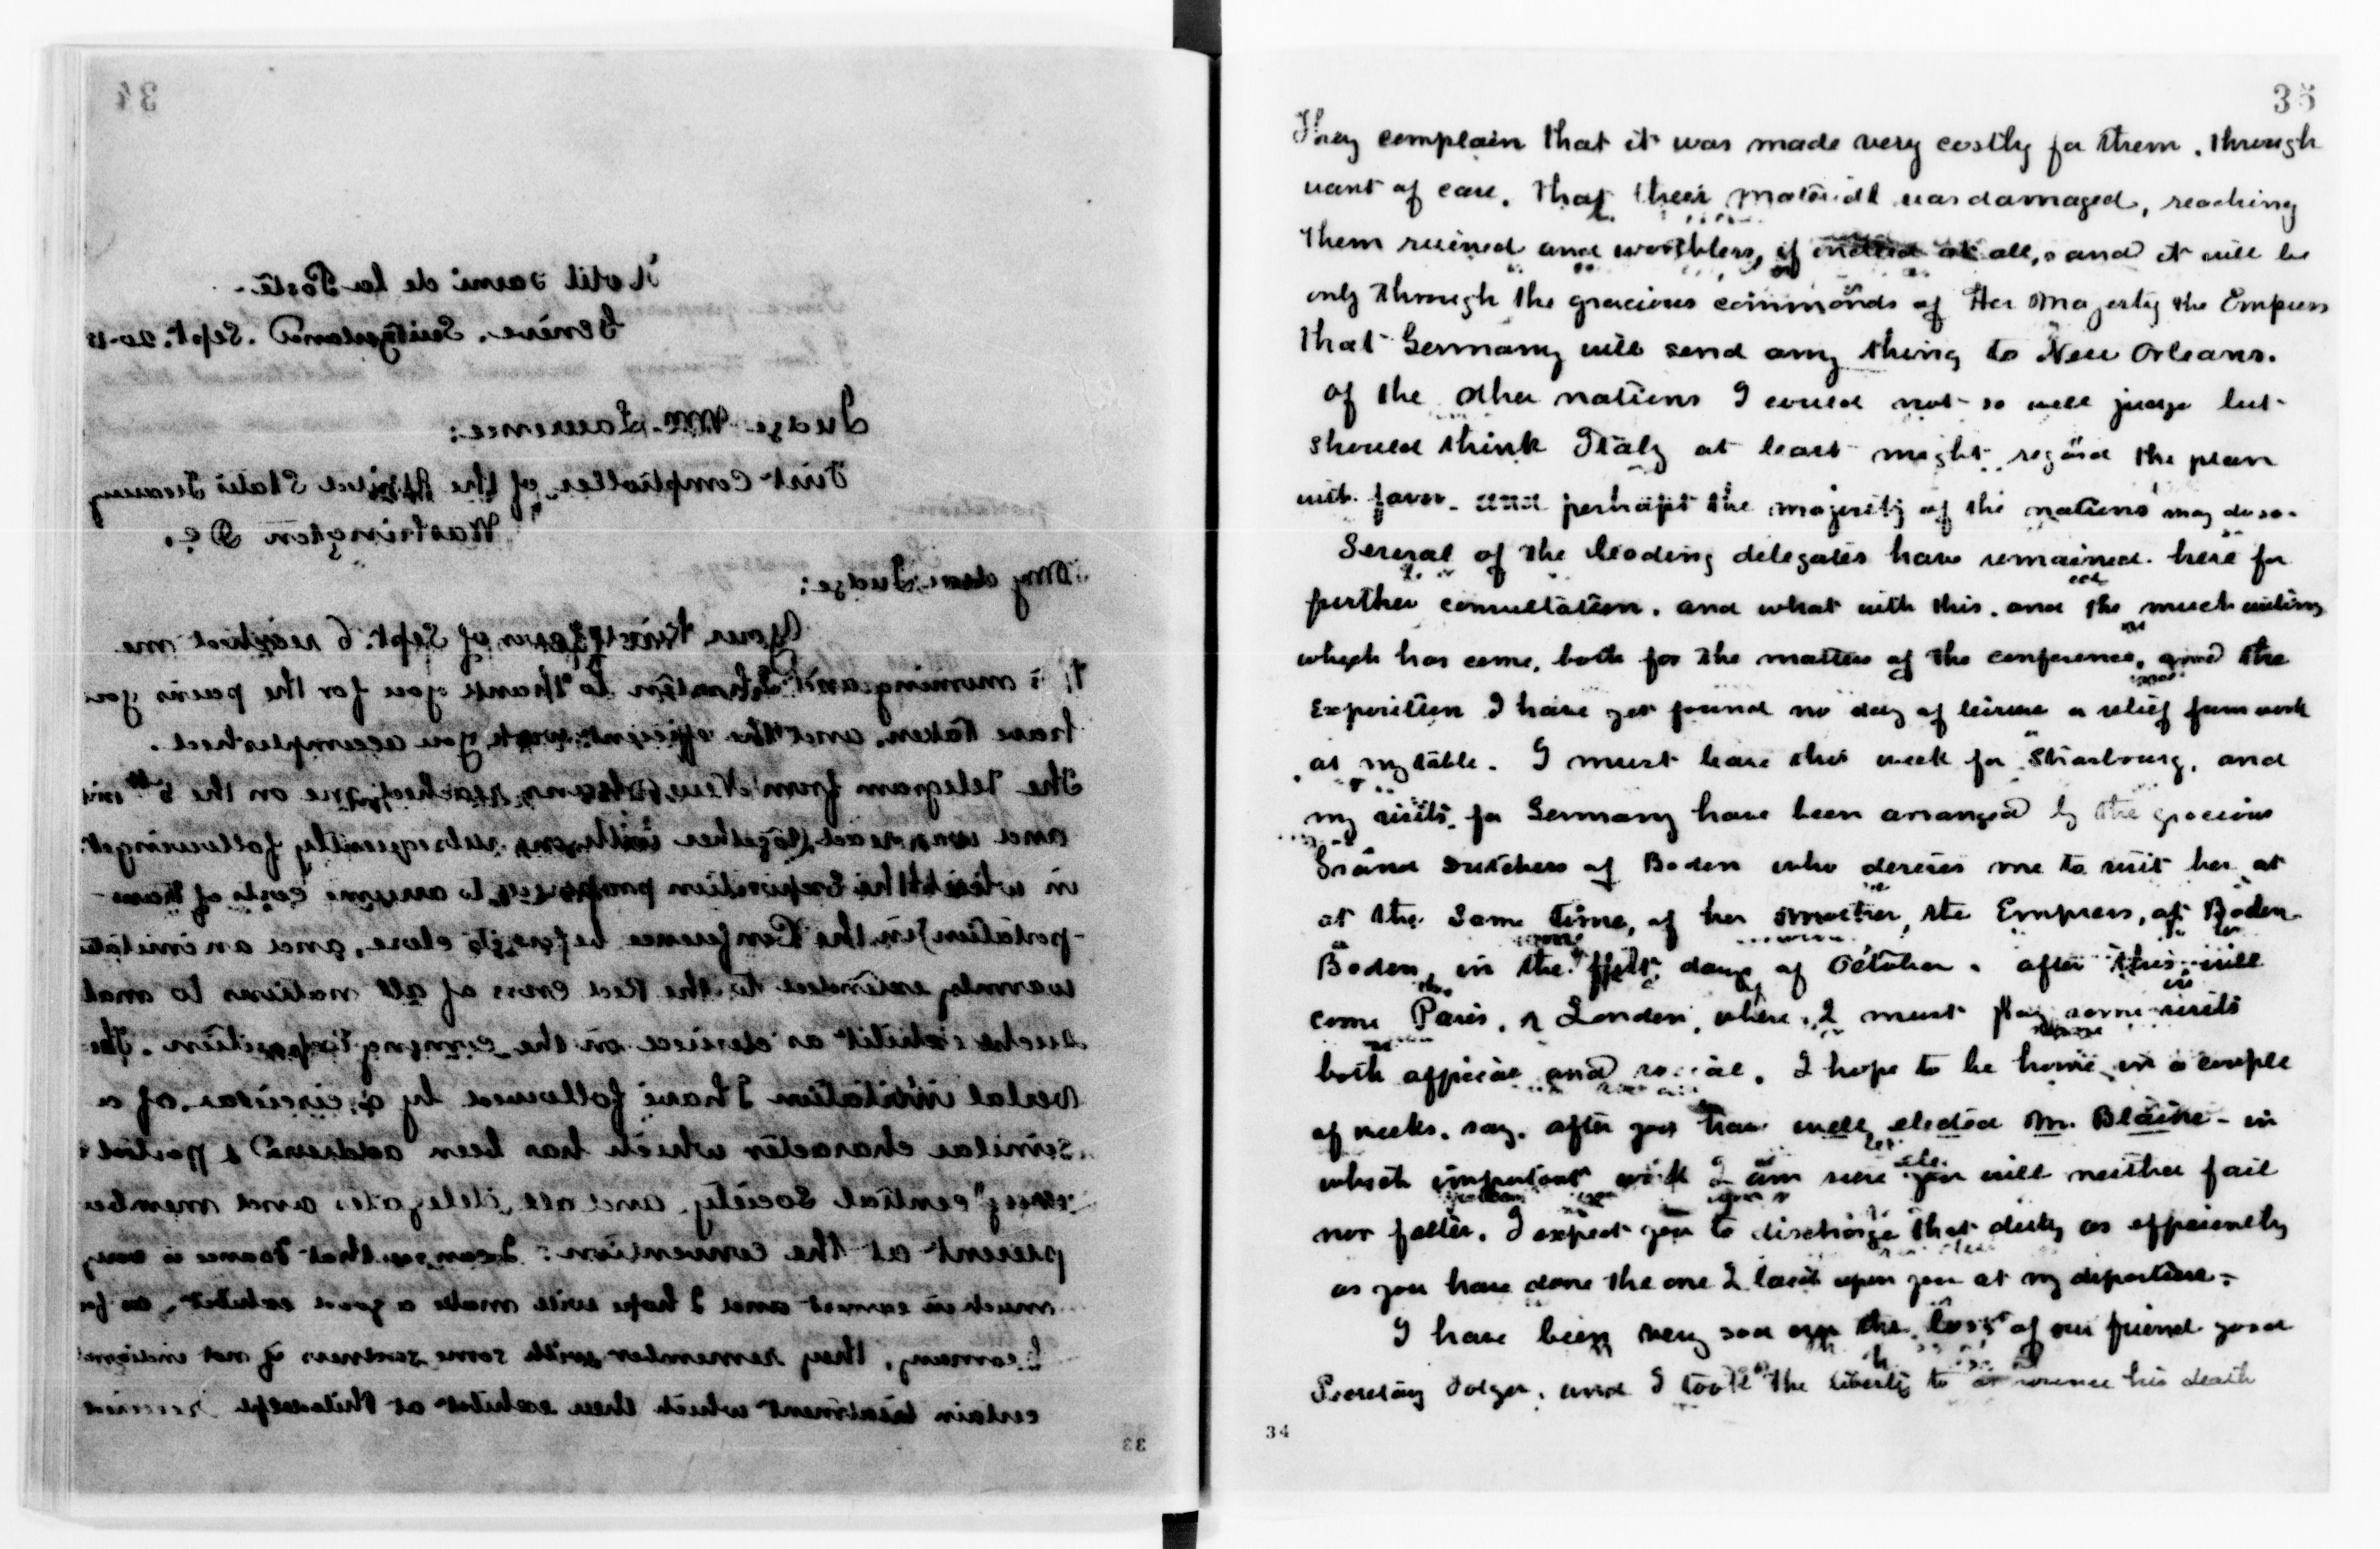 34
Hotel garni de la Poste.
Genève. Switzerland. Sept. 20-
Judge Wm. Lawrence:
First Comptroller of the United States Treasury
Washington D.C.
My dear Judge:
Your kind favor of Sept. 6 reached me
this morning and I hasten to thank you for the pains you
have taken, and the efficient work you accomplished.
The telegram from New Orleans reached me on the 5th inst
and was read (together with one subsequently following it
in which the Exposition proposes to assume costs of trans-
portation) in the Conference before its close, and an invitation
warmly extended to the Red Cross of all nations to make
such exhibit as desired in the coming Exposition. The
verbal invitation I have followed by a circular of a
similar character which has been addressed & posted
every central Society and all delegates and members
present at the convention: I can say that France is very
much in earnest and I hope will make a good exhibit, as for
Germany, they remember with some soreness if not indignation
certain treatment which their exhibit at Philadelph received
33
35
They complain that it was made very costly for them, through
want of care, that their material was damaged, reaching
them ruined and worthless, if indeed at all, and it will be
only through the gracious commands of Her Majesty the Empress
that Germany will send any thing to New Orleans.
of the other nations I could not so well judge but
should think Italy at least might regard the plan
with favor - and perhaps the majority of the nations may do so.
Several of the leading delegates have remained here for
further consultation, and what with this, and the much writing
which has come, both for the matters of the conference, and the
Exposition I have yet found no day of leisure or relief from work
at my table. I must leave this week for Strasbourg, and
my visits for Germany have been arranged by the gracious
Grand Dutchess of Baden who desires me to visit her at
at the same time, of her mother, the Empress, at Baden
Baden, in the first days of October. after this will
come Paris, & London, where I must pay some visits
both official and social. I hope to be home in a couple
of weeks, say, after you have well elected Mr. Blaine - in
which important work I am sure you will neither fail
nor falter. I expect you to discharge that duty as efficiently
as you have done the one I laid upon you at my departure.
I have been very sad over the loss of our friend good
Secretary Folger, and I took the liberty to announce his death
34